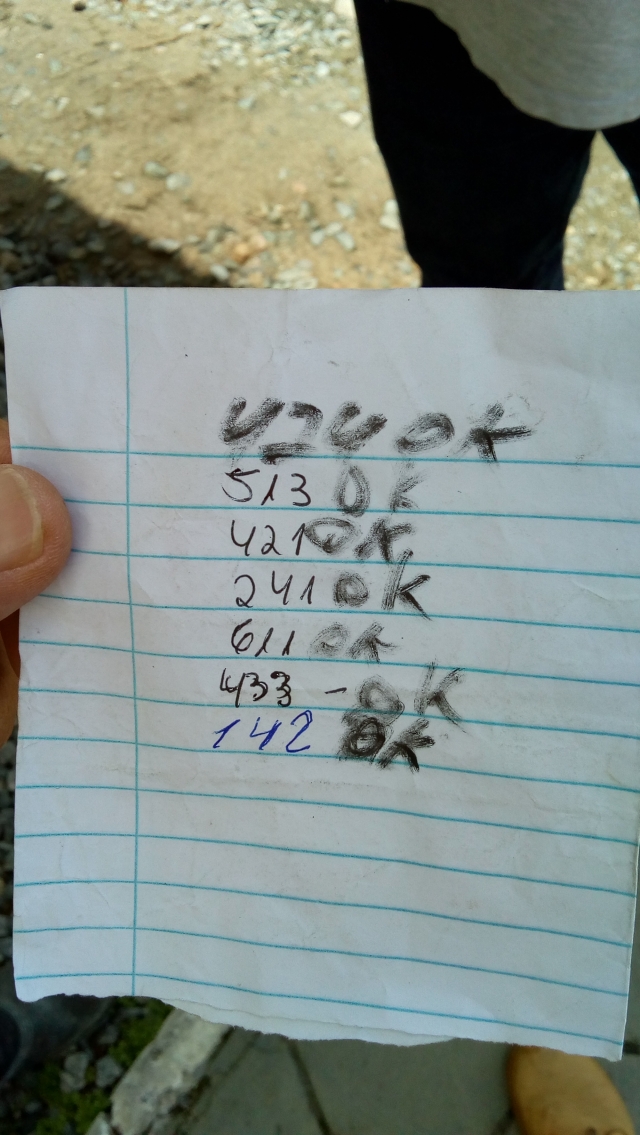 424 OK
513 OK
421 OK
241 OK
611 OK
433 - OK
142 OK